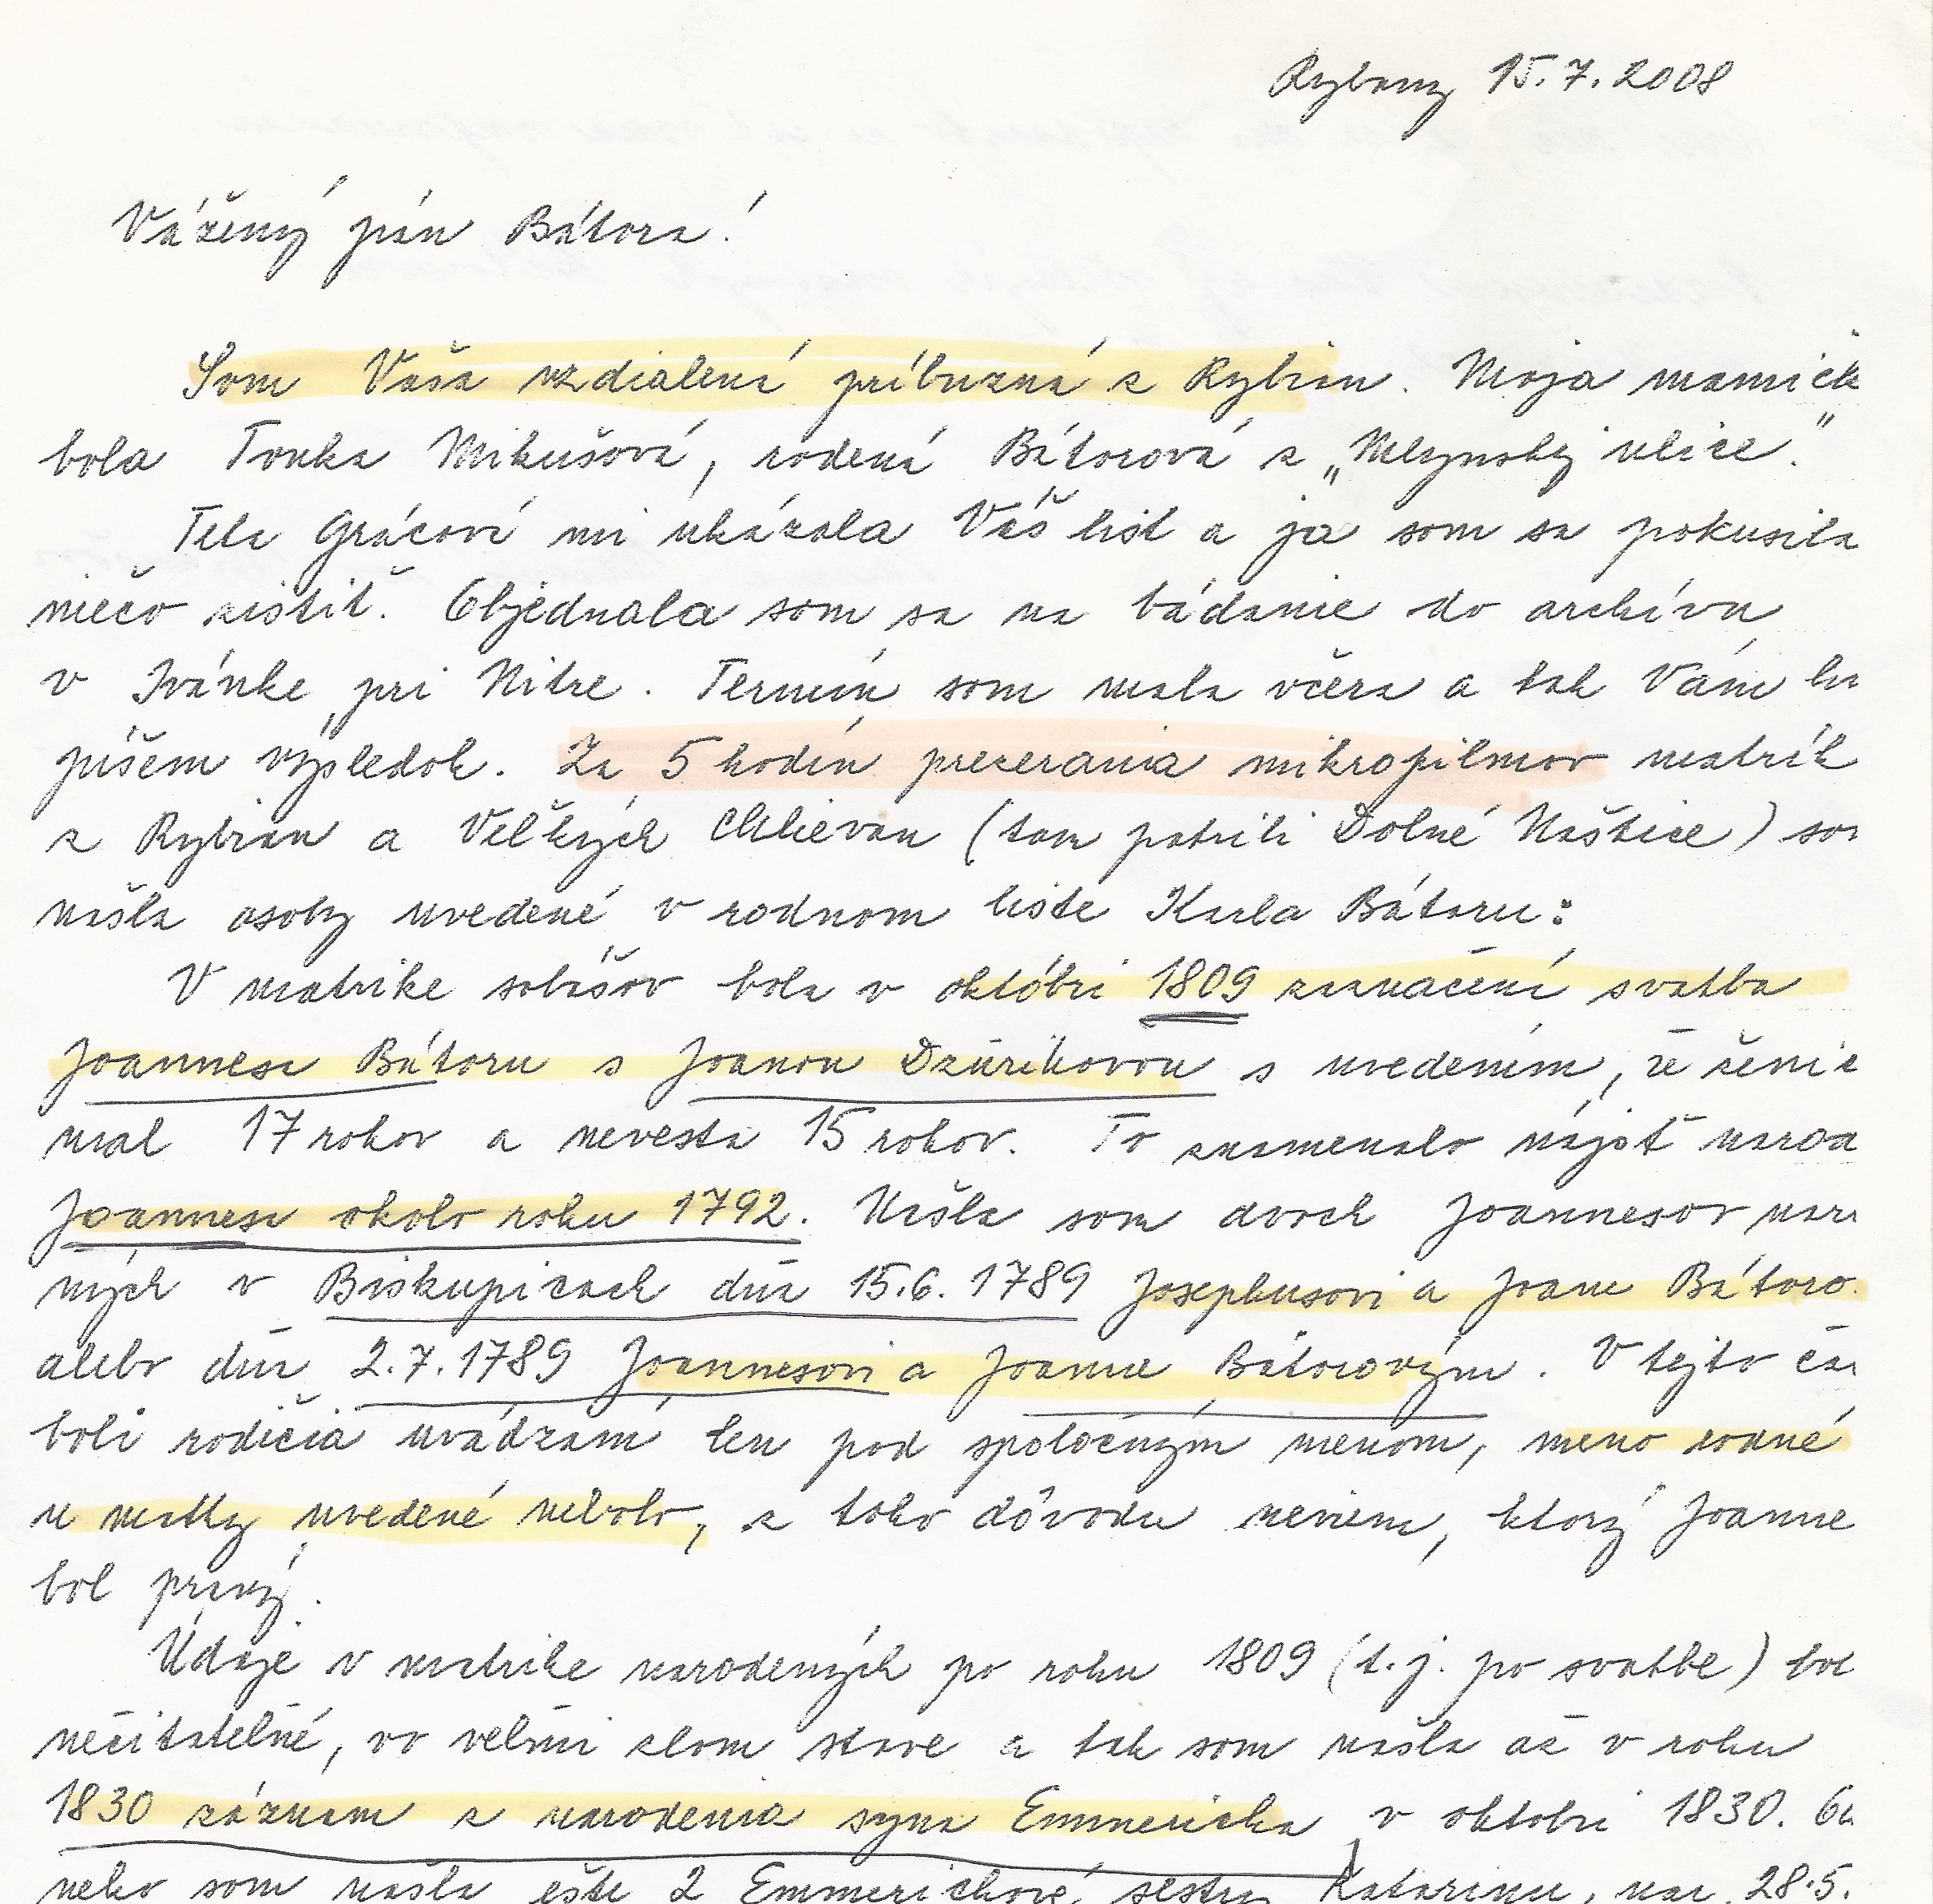 Rybany 15.7.2008
Vážený pán Bátora!
Som Vaša vzdialená príbuzná z Rybian. Moja mamičk
bola Tonka Mikušová, rodená Bátorová z „Mlynskej ulice."
Tela Grácová mi ukázala Váš list a ja som sa pokusila
niečo zistiť. Objednala som sa na bádanie do archívu
v Ivánke pri Nitre. Termín som mala včera a tak Vám hn
píšem výsledok. Za 5 hodín prezerania mikrofilmov matrík
z Rybian a Veľkých Chlievan (tam patrili Dolné Naštice) som
našla osoby uvedené v rodnom liste Karla Bátoru:
V matrike sobášov bola v októbri 1809 zaznačená svatba
Joannesa Bátoru s Joanou Dzúrikovou s uvedením, že ženíc
mal 17 rokov a nevesta 15 rokov. To znamenalo nájsť narod
Joannesa okolo roku 1792. Našla som dvoch Joannesov naro
ných v Biskupicach dňa 15.6.1789 Josephusovi a Joane Bátoro
alebo dňa 2.7.1789 Joannesovi a Joanne Bátorovým. V tejto ča
boli rodičia uvádzaní len pod spoločným menom, meno rodné
u matky uvedené nebolo, z toho dôvodu neviem, ktorý Joanne
bol pravý.
Údaje v matrike narodených po roku 1809 (t.j. po svatbe) bol
nečitateľné, vo veľmi zlom stave a tak som našla až v roku
1830 záznam z narodenia syna Emmericha v októbri 1830. Ok
neho som našla ešte 2 Emmerichové sestry Katarinu, nar. 28.5.